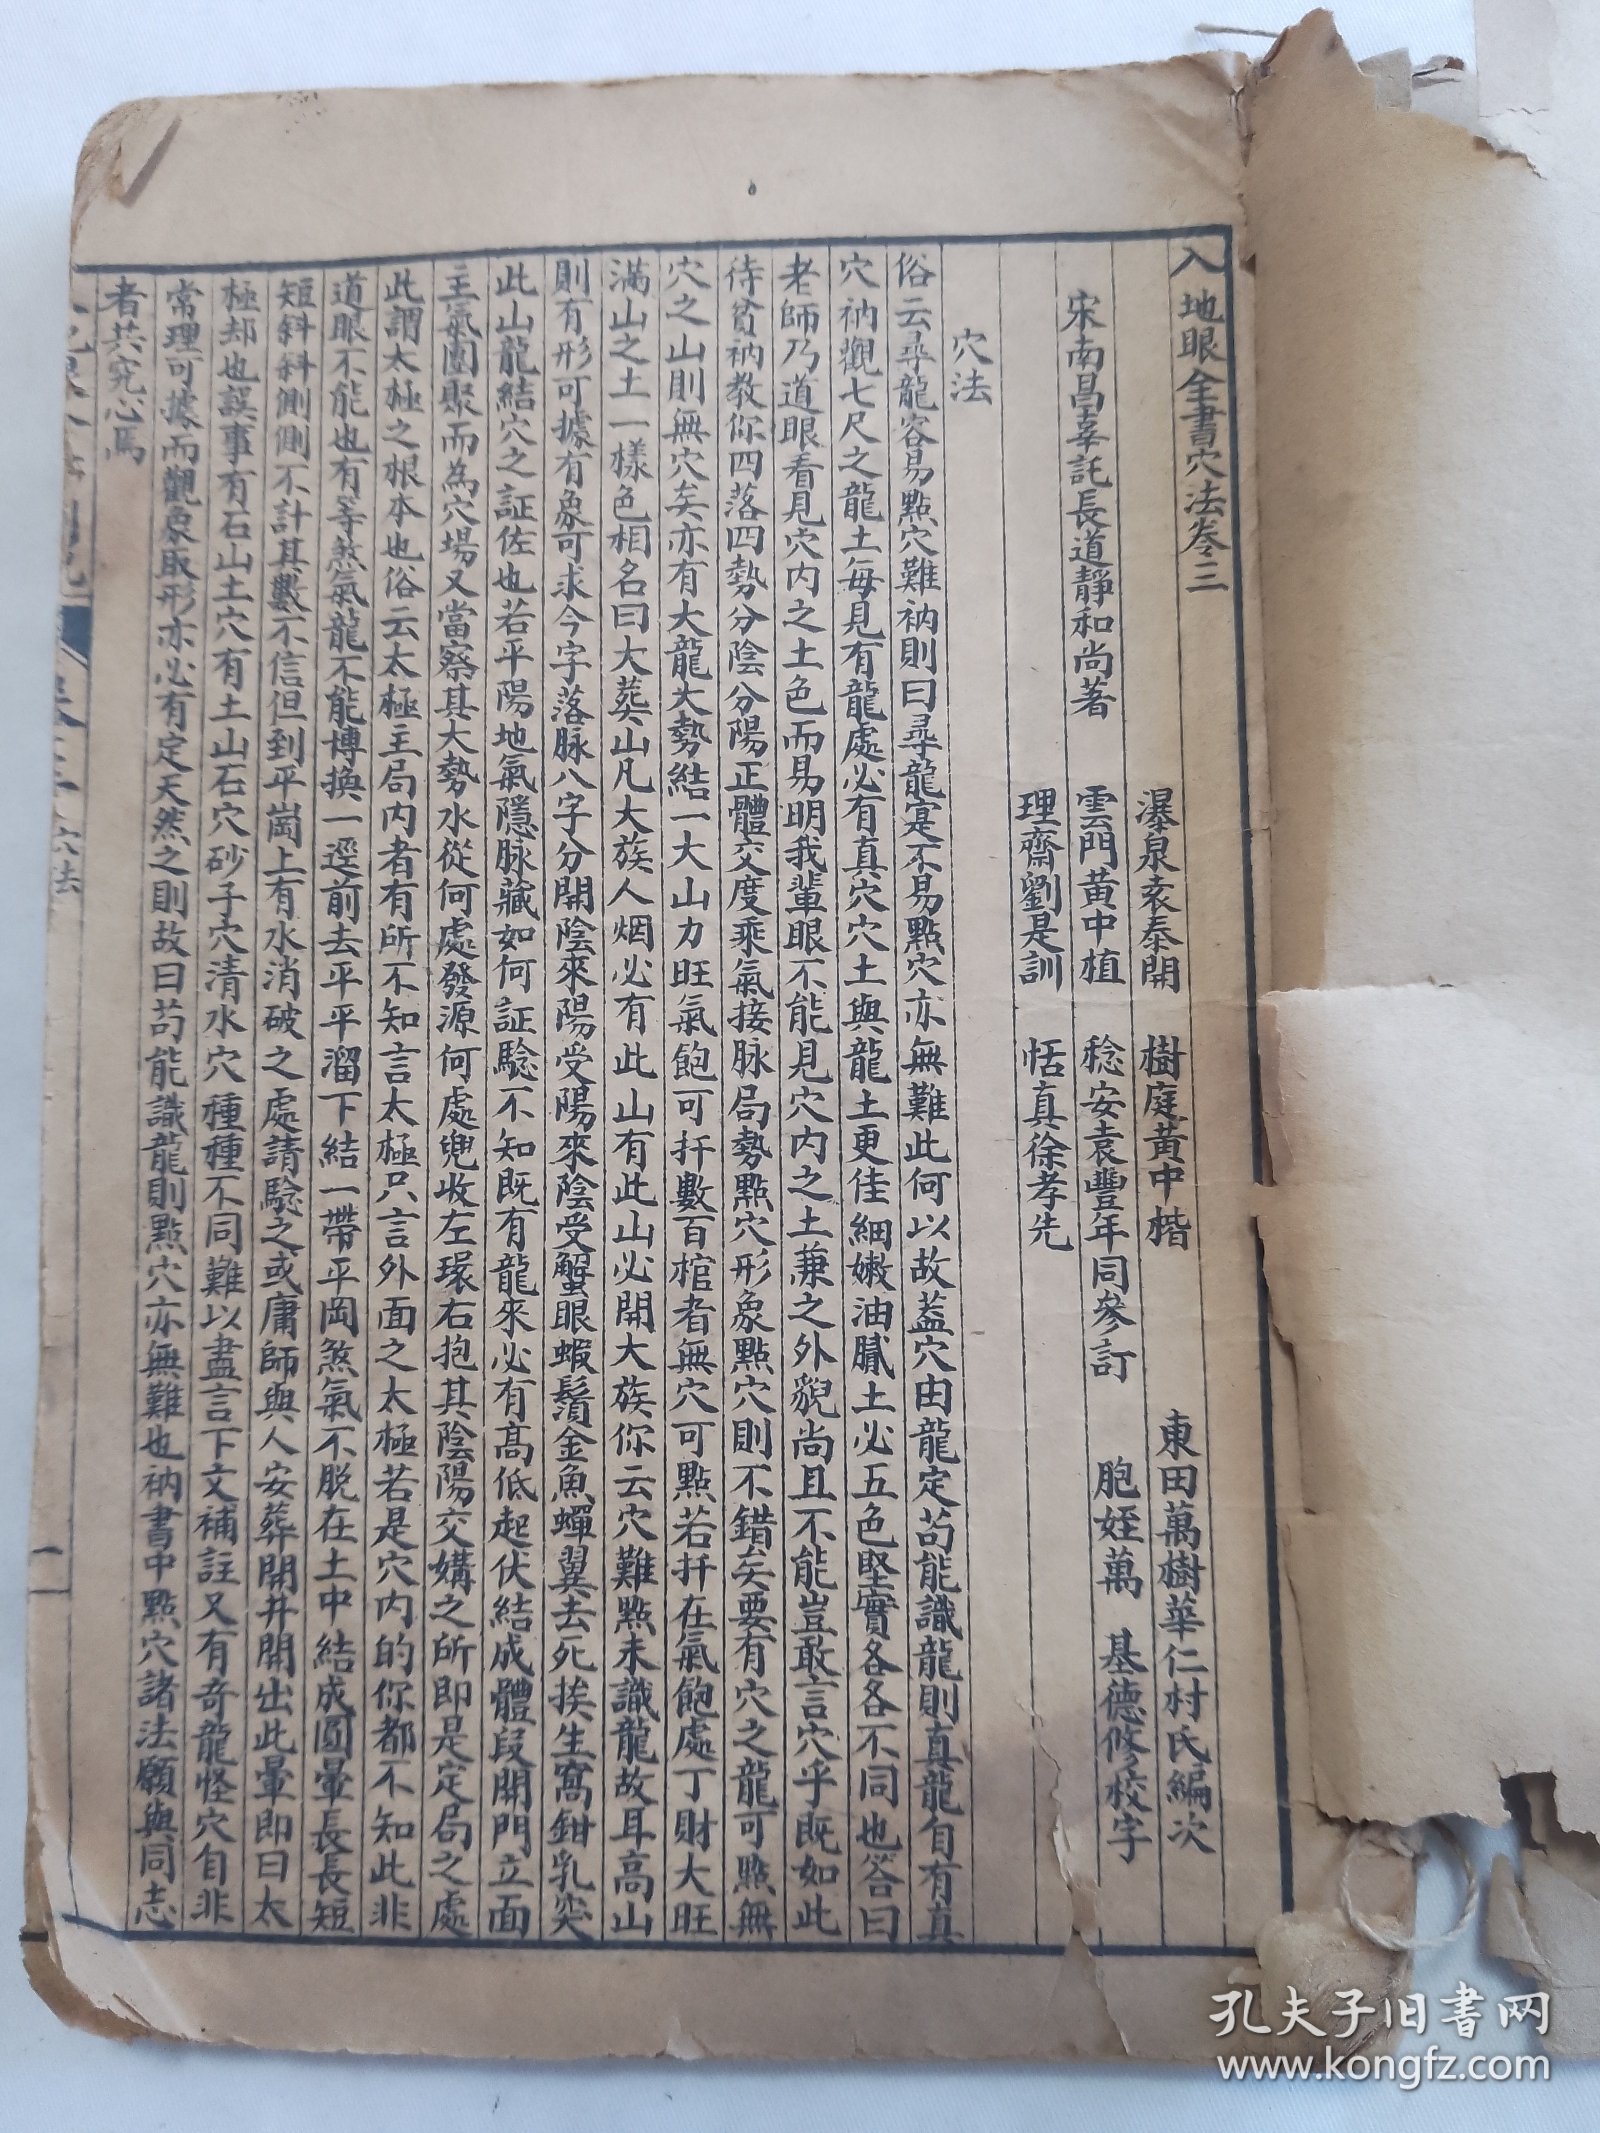 入地眼全書穴法卷三
東田萬樹華仁村氏編次
瀑泉袁泰開 樹庭黃中楷
宋南昌辜託長道靜和尚著 雲門黃中植 稔安袁豐年同參訂 胞姪萬 基德修校字
理齋劉是訓 恬真徐孝先
穴法
俗云尋龍容易點穴難衲則曰尋龍寔不易點穴亦無難此何以故蓋穴由龍定苟能識龍則真龍自有真
穴衲觀七尺之龍土每見有龍處必有真穴穴土與龍土更佳細嫩油膩土必五色堅實各各不同也答曰
老師乃道眼看見穴內之土色而易明我輩眼不能見穴內之土兼之外貌尚且不能豈敢言穴乎既如此
待貧衲教你四落四勢分陰分陽正體交度乘氣接脉局勢點穴形象點穴則不錯矣要有穴之龍可點無
穴之山則無穴矣亦有大龍大勢結一大山力旺氣飽可扦數百棺者無穴可點若扦在氣飽處丁財大旺
滿山之土一樣色相名曰大葬山凡大族人烟必有此山有此山必開大族你云穴難點未識龍故耳高山
則有形可據有象可求今字落脉八字分開陰來陽受陽來陰受蟹眼蝦鬚金魚蟬翼去死挨生窩鉗乳突
此山龍結穴之証佐也若平陽地氣隱脉藏如何証驗不知既有龍來必有高低起伏結成體段開門立面
主氣團聚而為穴場又當察其大勢水從何處發源何處兜收左環右抱其陰陽交媾之所即是定局之處
此謂太極之根本也俗云太極主局內者有所不知言太極只言外面之太極若是穴內的你都不知此非
道眼不能也有等煞氣龍不能博換一逕前去平平溜下結一帶平岡煞氣不脱在土中結成圓暈長長短
短斜斜側側不計其數不信但到平崗上有水消破之處請驗之或庸師與人安葬開井開出此暈即曰太
極却也誤事有石山土穴有土山石穴砂子穴清水穴種種不同難以盡言下文補註又有奇龍怪穴自非
常理可據而觀象取形亦必有定天然之則故曰苟能識龍則點穴亦無難也衲書中點穴諸法願與同志
者共究心焉
穴法 一
孔夫子旧书网
www.kongfz.com